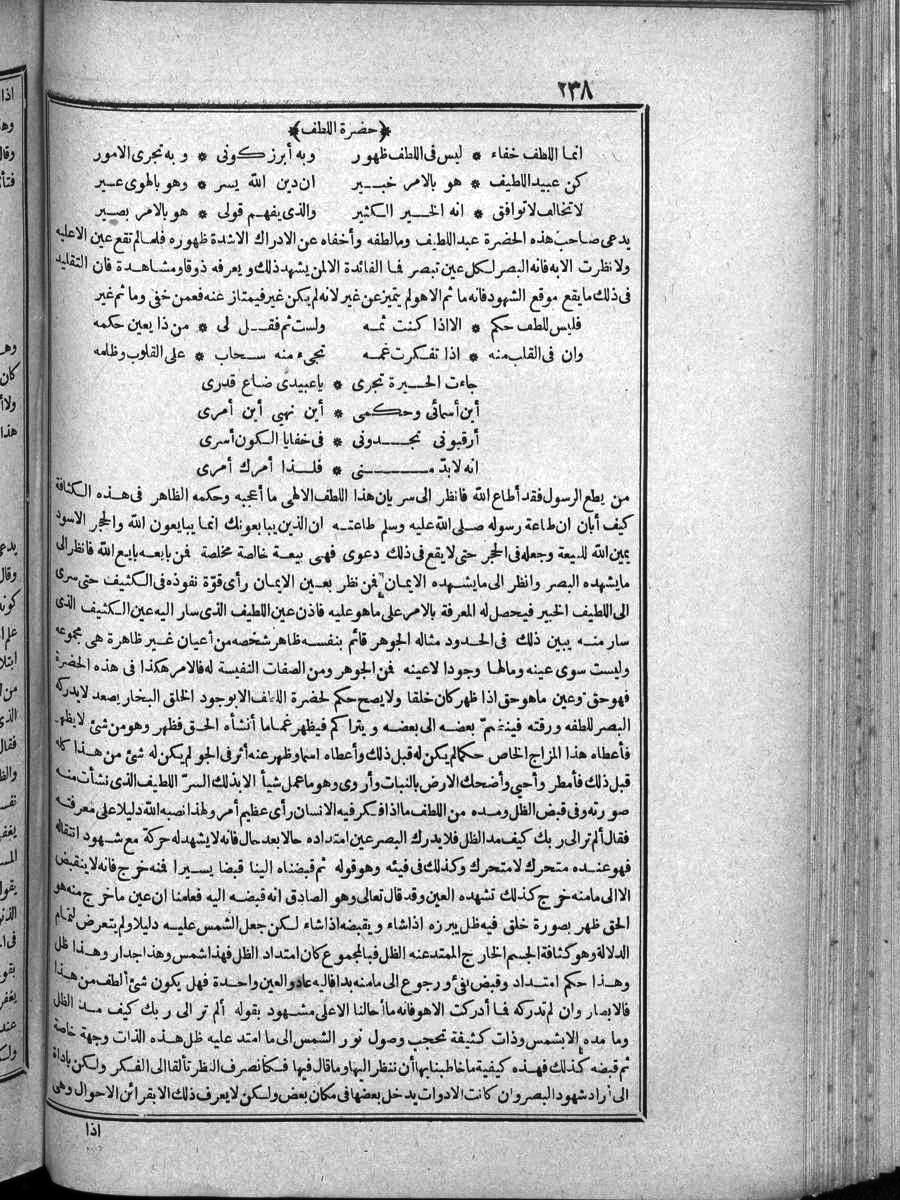 ٢٣٨
﴿حضرة اللطف﴾
انما اللطف خفاء * ليس فى اللطف ظهور وبه أبرز كونى * وبه تجرى الامور
كن عبيد اللطيف * هو بالامر خبير ان دين الله يسر * وهو بالهوى عسير
لا تخالف لا توافق * انه الخير الكثير والذى يفهم قولى * هو بالامر بصير
يدعى صاحب هذه الحضرة عبد اللطيف وما لطفه وأخفاه عن الادراك الا شدة ظهوره فلما لم تقع عين الا عليه
ولا نظرت الا به فانه البصر لكل عين تبصر فما الفائدة الا لمن يشهد ذلك ويعرفه ذوقا ومشاهدة فان التقليد
فى ذلك ما يقع موقع الشهود فانه ما ثم الا هو لم يتميز عن غير لانه لم يكن غير فيمتاز عنه فعمن خفى وما ثم غير
فليس للطف حكم * الا اذا كنت ثمه ولست ثم فقل لى * من ذا يعين حكمه
وان فى القلب منه * اذا تفكرت غمه تجىء منه سحاب * على القلوب وظلمه
جاءت الحيرة تجرى * يا عبيدى ضاع قدرى
أين أسمائى وحكمى * أين نهيى أين أمرى
أرقبونى تجدونى * فى خفايا الكون أسرى
انه لابد منى * فلذا أمرك أمرى
من يطع الرسول فقد أطاع الله فانظر الى سريان هذا اللطف الالهى ما أعجبه وحكمه الظاهر فى هذه الكثافة
كيف أبان ان طاعة رسوله صلى الله عليه وسلم طاعته ان الذين يبايعونك انما يبايعون الله والحجر الاسود
يمين الله للبيعة وجعله فى الحجر حتى لا يقع فى ذلك دعوى فهى بيعة خالصة مخلصة فمن بايعه بايع الله فانظر الى
ما يشهده البصر وانظر الى ما يشهده الايمان فمن نظر بعين الايمان رأى قوة نفوذه فى الكثيف حتى سرى
الى اللطيف الخبير فيحصل له المعرفة بالامر على ما هو عليه فاذن عين اللطيف الذى سار اليه عين الكثيف الذى
سار منه يبين ذلك فى الحدود مثاله الجوهر قائم بنفسه ظاهر شخصه من أعيان غير ظاهرة هى مجموعه
وليست سوى عينه وما لها وجود الا عينه فمن الجوهر ومن الصفات النفسية له فالامر هكذا فى هذه الحضرة
فهو حق وعين ما هو حق اذا ظهر كان خلقا ولا يصح حكم لحضرة اللطف الا بوجود الخلق البخار يصعد لا يدركه
البصر للطفه ورقته فينضم بعضه الى بعضه ويتراكم فيظهر غماما أنشأه الحق فظهر وهو من شئ لا يظهر
فأعطاه هذا المزاج الخاص حكما لم يكن له قبل ذلك وأعطاه اسما وظهر عنه أثر فى الجو لم يكن له شئ من هذا كله
قبل ذلك فأمطر وأحيى وأضحك الارض بالنبات وأروى وهو ما عمل شيأ الا بذلك السر اللطيف الذى نشأت منه
صورته وفى قبض الظل ومده من اللطف ما اذا فكر فيه الانسان رأى عظيم أمر ولهذا نصبه الله دليلا على معرفته
فقال ألم تر الى ربك كيف مد الظل فلا يدرك البصر عين امتداده حالا بعد حال فانه لا يشهد له حركة مع شهود انتقاله
فهو عنده متحرك لا متحرك وكذلك فى فيئه وهو قوله ثم قبضناه الينا قبضا يسيرا فمنه خرج فانه لا ينقبض
الا الى ما منه خرج كذلك تشهده العين وقد قال تعالى وهو الصادق انه قبضه اليه فعلمنا ان عين ما خرج منه هو
الحق ظهر بصورة خلق فيه ظل يبرزه اذا شاء ويقبضه اذا شاء لكن جعل الشمس عليه دليلا ولم يتعرض لتمام
الدلالة وهو كثافة الجسم الخارج الممتد عنه الظل فبالمجموع كان امتداد الظل فهذا شمس وهذا جدار وهذا ظل
وهذا حكم امتداد وقبض بفىء ورجوع الى ما منه بدا فاليه عاد والعين واحدة فهل يكون شئ ألطف من هذا
فالابصار وان لم تدركه فما أدركت الا هو فانه ما أحالنا الا على مشهود بقوله ألم تر الى ربك كيف مد الظل
وما مده الا بشمس وذات كثيفة تحجب وصول نور الشمس الى ما امتد عليه ظل هذه الذات وجهة خاصة
ثم قبضه كذلك فهذه كيفية ما خاطبنا بها أن ننظر اليها وما قال فيها فكأنصرف النظر تألقا الى الفكر ولكن باداة
الى أراد شهود البصر وان كانت الادوات يدخل بعضها فى مكان بعض ولكن لا يعرف ذلك الا بقرائن الاحوال وهى
اذا